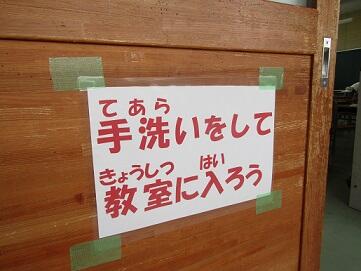 てあら
手洗いをして
きょうしつ はい
教室に入ろう